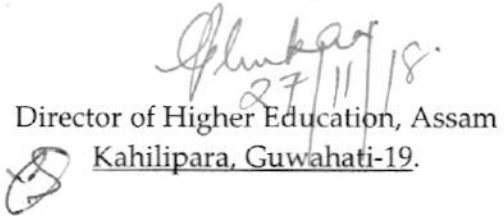 27/11/18.
Director of Higher Education, Assam
Kahilipara, Guwahati-19.